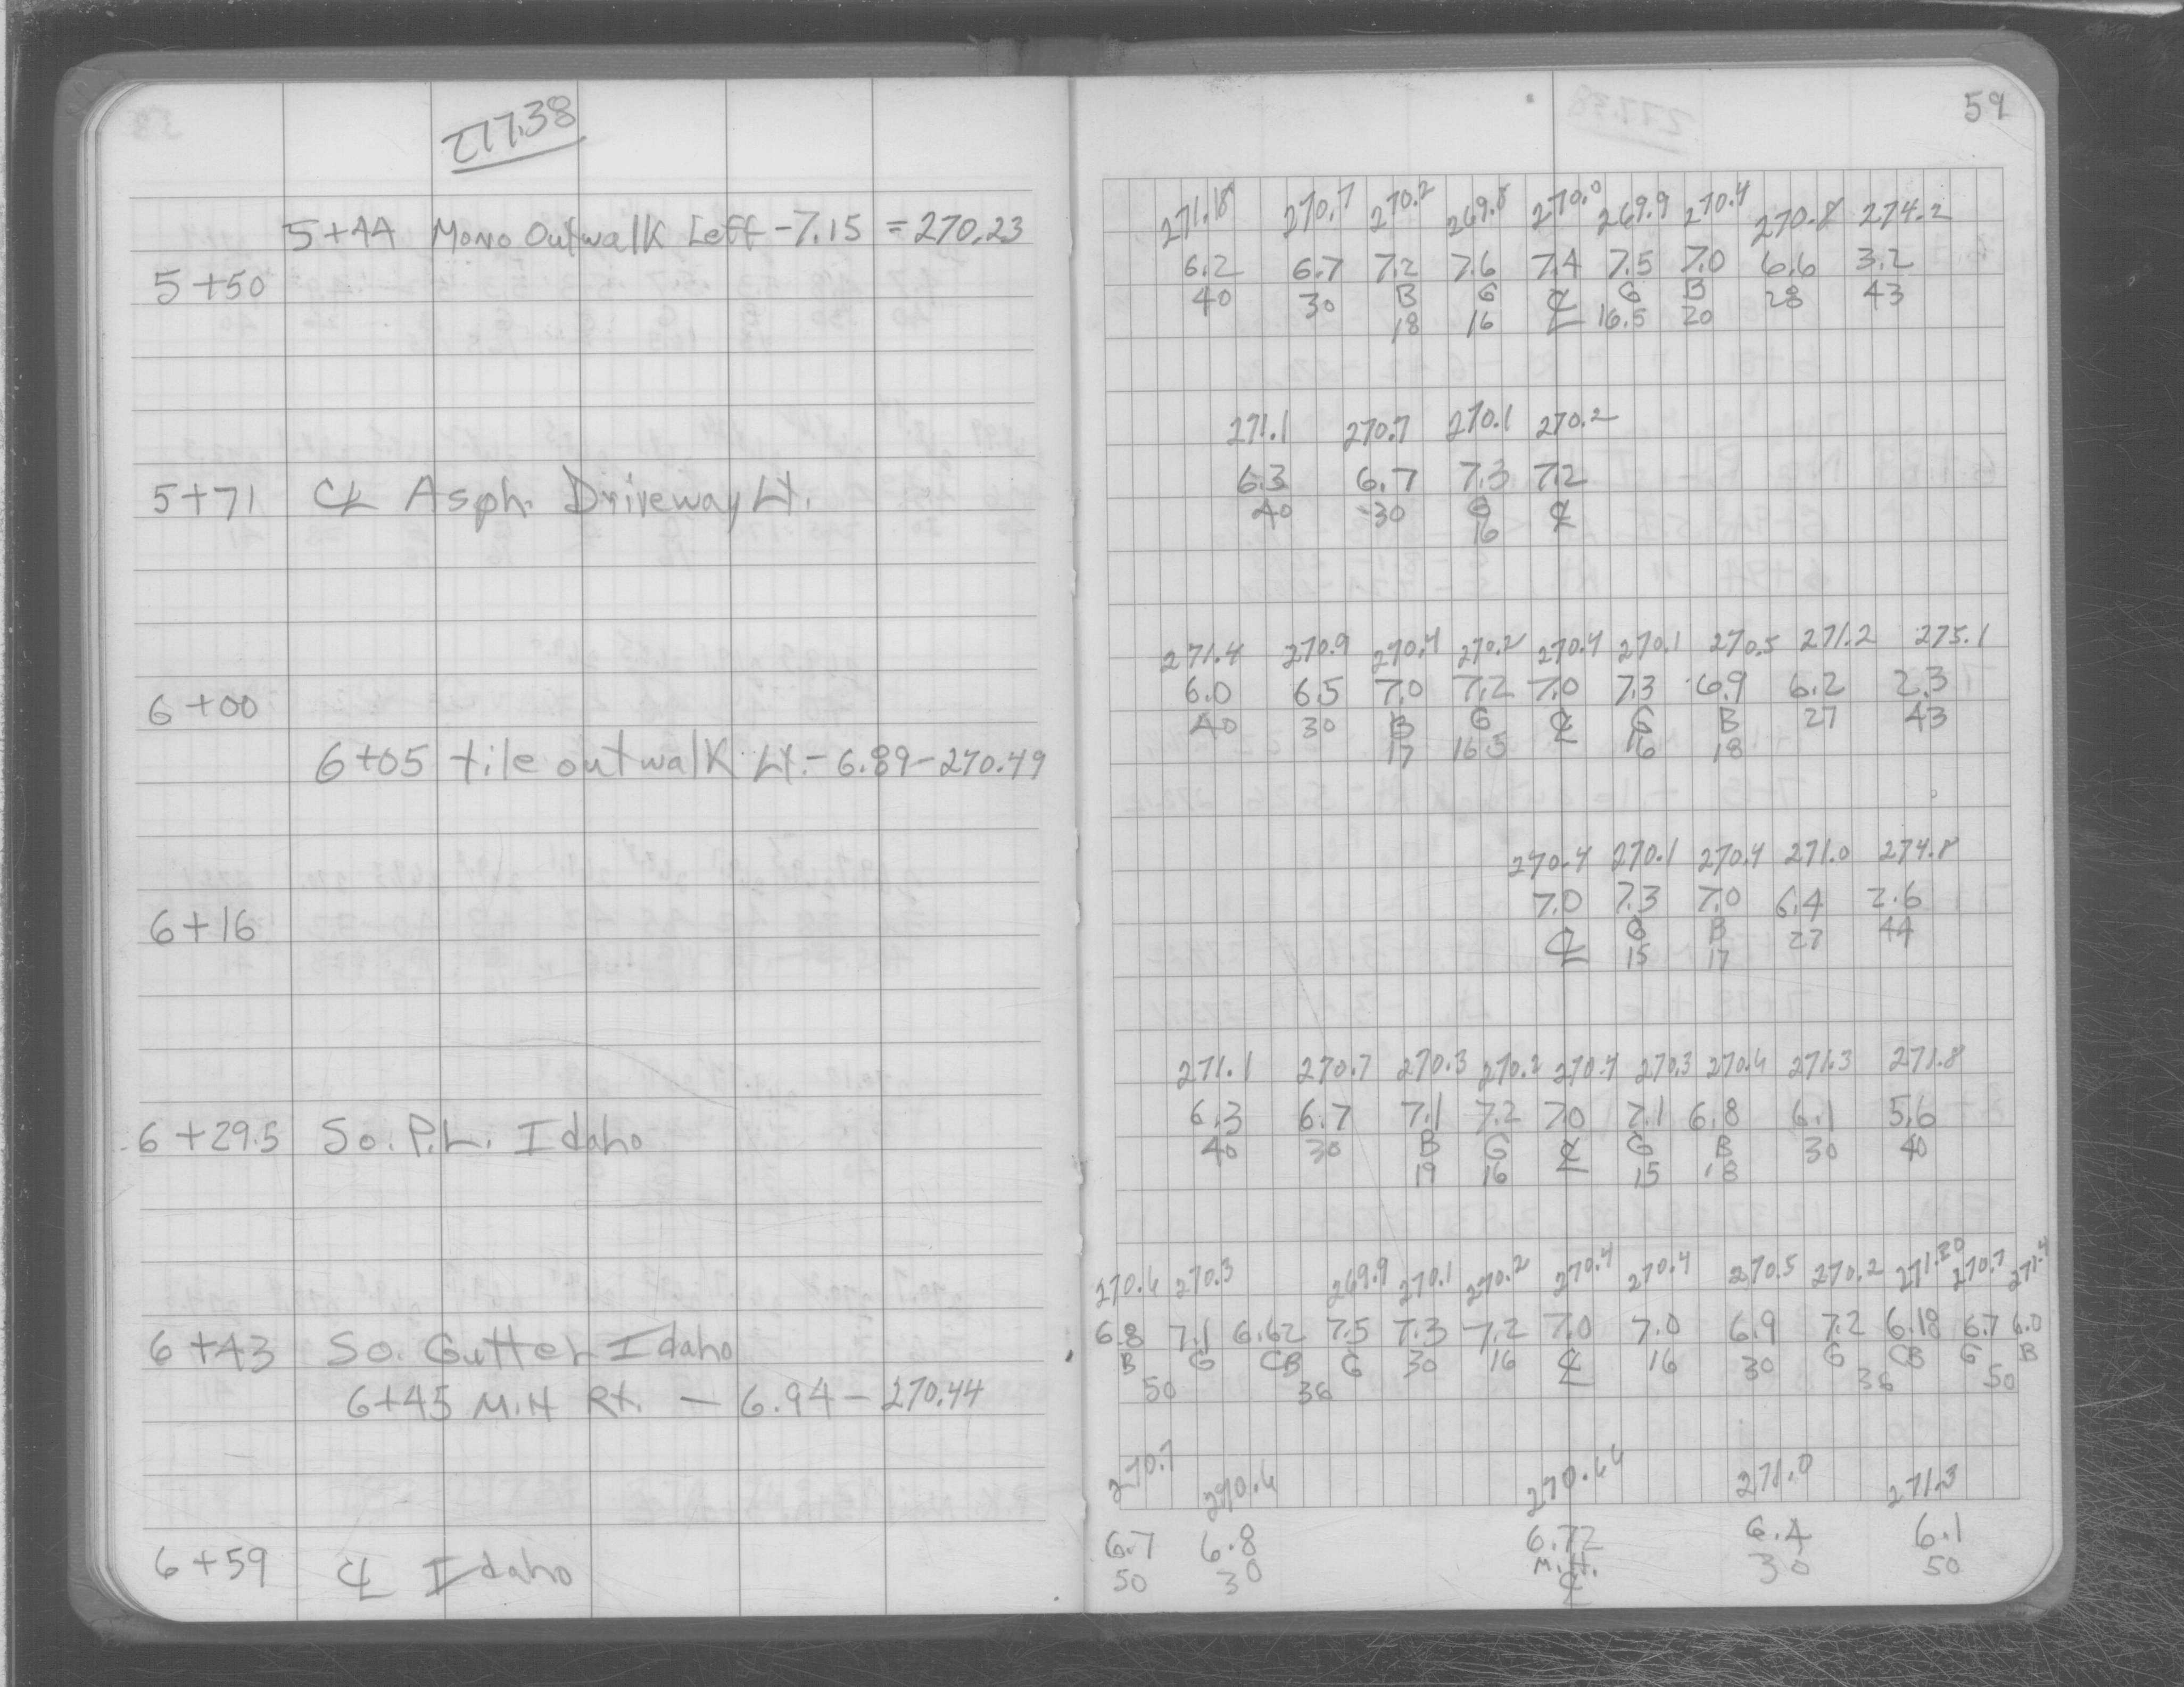 277.38
5+44 Mono Outwalk Left - 7.15 = 270.23
5+50
5+71 ℄ Asph. Driveway Lt.
6+00
6+05 tile outwalk Lt. - 6.89 - 270.49
6+16
6+29.5 So. P.L. Idaho
6+43 So. Gutter Idaho
6+45 M.H Rt. - 6.94 - 270.44
6+59 ℄ Idaho
59
271.18 270.7 270.2 269.8 270.0 269.9 270.4 270.8 274.2
6.2 6.7 7.2 7.6 7.4 7.5 7.0 6.6 3.2
40 30 B G ℄ G B 28 43
18 16 16.5 20
271.1 270.7 270.1 270.2
6.3 6.7 7.3 7.2
40 30 G ℄
16
271.4 270.9 270.4 270.2 270.4 270.1 270.5 271.2 275.1
6.0 6.5 7.0 7.2 7.0 7.3 6.9 6.2 2.3
40 30 B G ℄ G B 27 43
17 16.5 16 18
270.4 270.1 270.4 271.0 274.8
7.0 7.3 7.0 6.4 2.6
℄ G B 27 44
15 17
271.1 270.7 270.3 270.2 270.4 270.3 270.6 271.3 271.8
6.3 6.7 7.1 7.2 7.0 7.1 6.8 6.1 5.6
40 30 B G ℄ G B 30 40
19 16 15 18
270.6 270.3 269.9 270.1 270.2 270.4 270.4 270.5 270.2 271.20 270.7 271.4
6.8 7.1 6.62 7.5 7.3 7.2 7.0 7.0 6.9 7.2 6.18 6.7 6.0
B G CB G 30 16 ℄ 16 30 G CB G B
50 36 36 50
270.7 270.6 270.66 271.0 271.3
6.7 6.8 6.72 6.4 6.1
50 30 M.H. 30 50
℄